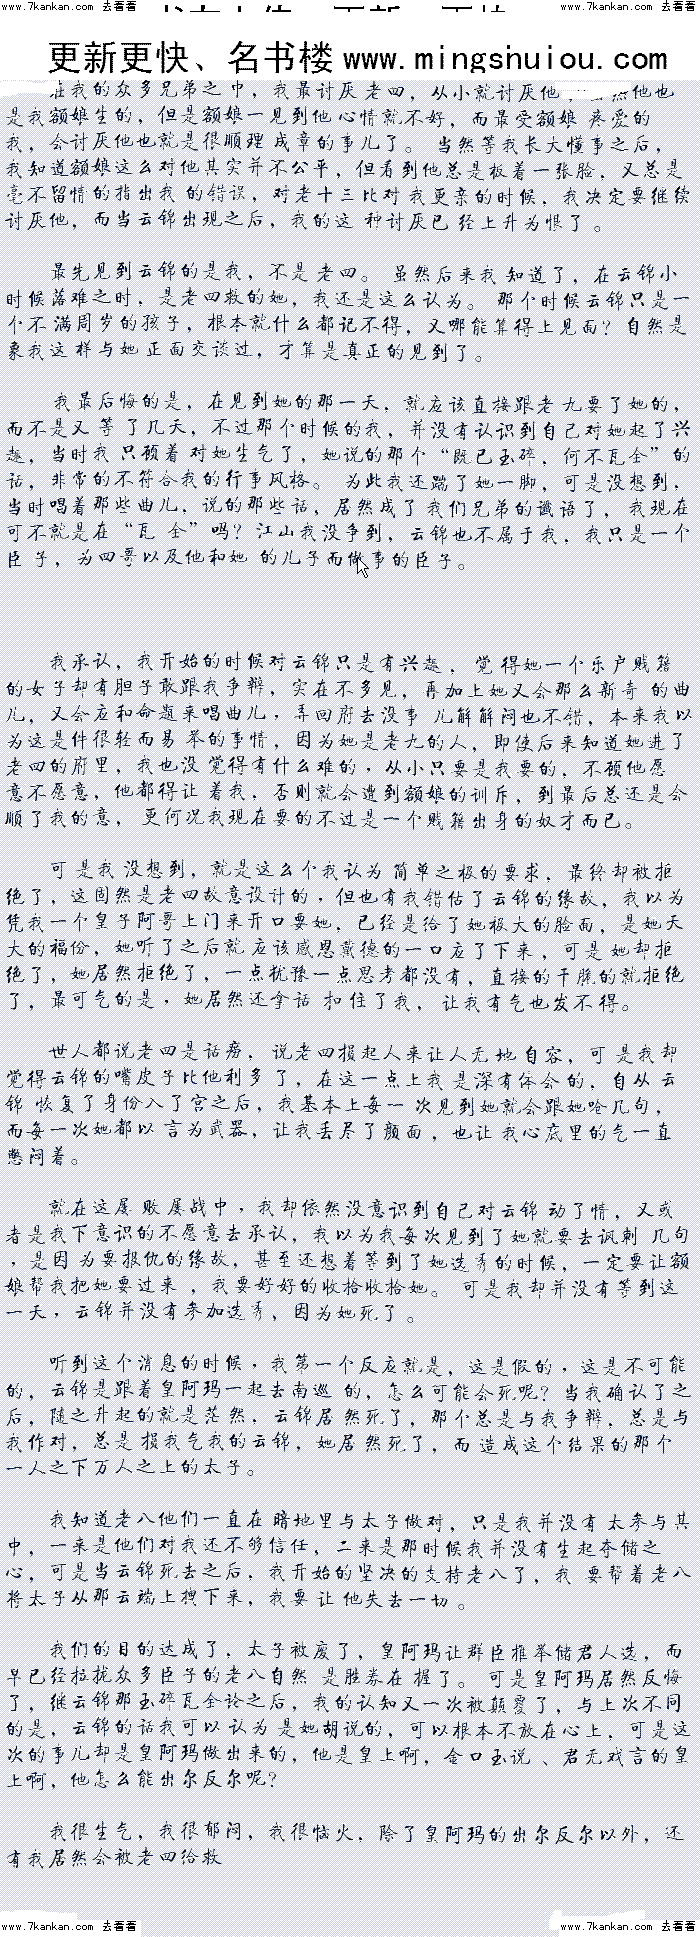 www.7kankan.com 去看看
www.7kankan.com 去看看
更新更快、名书楼 www.mingshuiou.com
在我的众多兄弟之中，我最讨厌老四，从小就讨厌他，虽然他也
是我额娘生的，但是额娘一见到他心情就不好，而最受额娘 疼爱的
我，会讨厌他也就是很顺理 成章的事儿了。 当然等我长大懂事之后，
我知道额娘这么对他其实并不公平，但看到他总是板着一张脸，又总是
毫不留情的指出我 的错误，对老十三比对我更亲的时候，我决定要继续
讨厌他，而当云锦出现之后，我的这 种讨厌已 经上升为恨了 。
最先见到云锦的是我，不是老四。 虽然后来我 知道了，在云锦小
时候落难之时，是老四救的她，我还是这么认为。 那个时候云锦只是一
个不 满周岁的孩子，根本就什么都记不得，又哪能算得上见面？自然是
象我这 样与她 正面交谈过，才算是真正的见到了。
我最后悔的是，在见到她的那一天，就应该直接跟老 九要了她的，
而不是又 等 了几天，不过那个时候的我，并没有认识到自己对她起了兴
趣，当时我 只顾着 对她生气了，她说的那个“既已玉碎，何不瓦全”的
话，非常的不符合我的行事风格。 为此我还踹了她一脚，可是没想到，
当时唱着那些曲儿，说的那些话，居然成了我们兄弟的谶语了， 我现在
可不就是在“瓦 全”吗？江山我没争到，云锦也不属于我，我只是一个
臣 子，为四哥以及他和她 的儿子而做事的臣子。
我承认，我开始的时候对云锦只是有兴趣 ， 觉 得她一个乐户贱籍
的女子却有胆子敢跟我争辩，实在不多见，再加上她又会那么新奇 的曲
儿，又会应和命题来唱曲儿，弄回府去没事 儿解解闷也不错，本来我以
为这是件很轻而易 举的事情，因为她是老九的人，即使后来知道她进了
老四的府里，我也没 觉得有什么难的，从小只要是我要的，不顾他愿
意不愿意，他都得让 着我，否则就会遭到额娘的训斥，到最后总还是会
顺了我的意， 更何况我现在要的不过是一个贱籍出身的奴才而已。
可 是我 没想到，就是这么个我认为 简单之极的要求，最终却被拒
绝了，这固然是老四故意设计的，但也有我错估了云锦的缘故，我以为
凭我一个皇子阿哥上门来开口要她，已经是给了她极大的脸面，是她天
大的福份，她听了之后就 应该感恩戴德的一口应了下来，可是 她却拒
绝了，她居然拒绝了，一点犹豫一点思考都没有，直接的干脆的就拒绝
了，最可气的是，她居然还拿话 扣 住了我， 让我有气也发不得。
世人都说老四是话痨， 说老四损起人来让人无 地 自容，可 是我却
觉得云锦的嘴皮子比他利多了，在这一点上我 是深有体会的，自从 云
锦 恢复了身份入了宫之后，我基本上每一 次见到她就会跟她呛几句，
而每一次她都以 言为武器，让我丢尽了颜面 ，也让 我心底里的气一直
憋闷着。
就在这屡 败 屡战中，我却依然没意识到自己对云锦 动了情，又或
者是我下意识的不愿意去承认，我以为我每次见到了她就要去讽刺 几句
，是因 为要报仇的缘故，甚至还想着等到了她选秀的时候，一定要让额
娘帮我把她要过来 ，我要好好的收拾收拾她。 可是我却并没有等到这
一天，云锦并没有参加选秀，因为她死了。
听到这个消息的时候，我第一个反应就是，这是假的，这是不可能
的，云锦是跟着皇阿玛一起去南巡 的，怎么可能会死呢？当我确认了之
后，随之升起的就是茫然， 云锦居 然死了，那个总是与我争辩，总是与
我作对，总是 损我气我的云锦，她居 然死了，而 造成这个结果的那个
一人之下万人之上的太子。
我知道老八他们一直在 暗地里与太子做对，只是我并没有 太参与其
中，一来是他们对我还不够信任，二来是那时候我并没有生起夺储之
心，可是当云锦死去之后，我开始的坚决的支持老八了，我 要帮着老八
将太子从那云端上拽下来，我要 让 他失去一切 。
我们的目的达成了，太子被废了，皇阿玛让群臣推举储君人选，而
早已经拉拢众多臣子的老八自然 是胜券在 握了。 可是皇阿玛居然反悔
了，继云锦那玉碎瓦全论之后，我的认知又一次被颠覆了，与上次不同
的是，云锦的话我可以 认为 是她胡说的，可以根本不放在心上，可是这
次的事儿却是皇阿玛做出来的，他是皇上啊，金口玉说 、君无戏言的皇
上啊，他怎么能出尔反尔呢？
我很生气，我很郁闷，我很恼火，除了皇阿玛的出尔反尔以外，还
有我居然会被老四给救
www.7kankan.com 去看看
www.7kankan.com 去看看